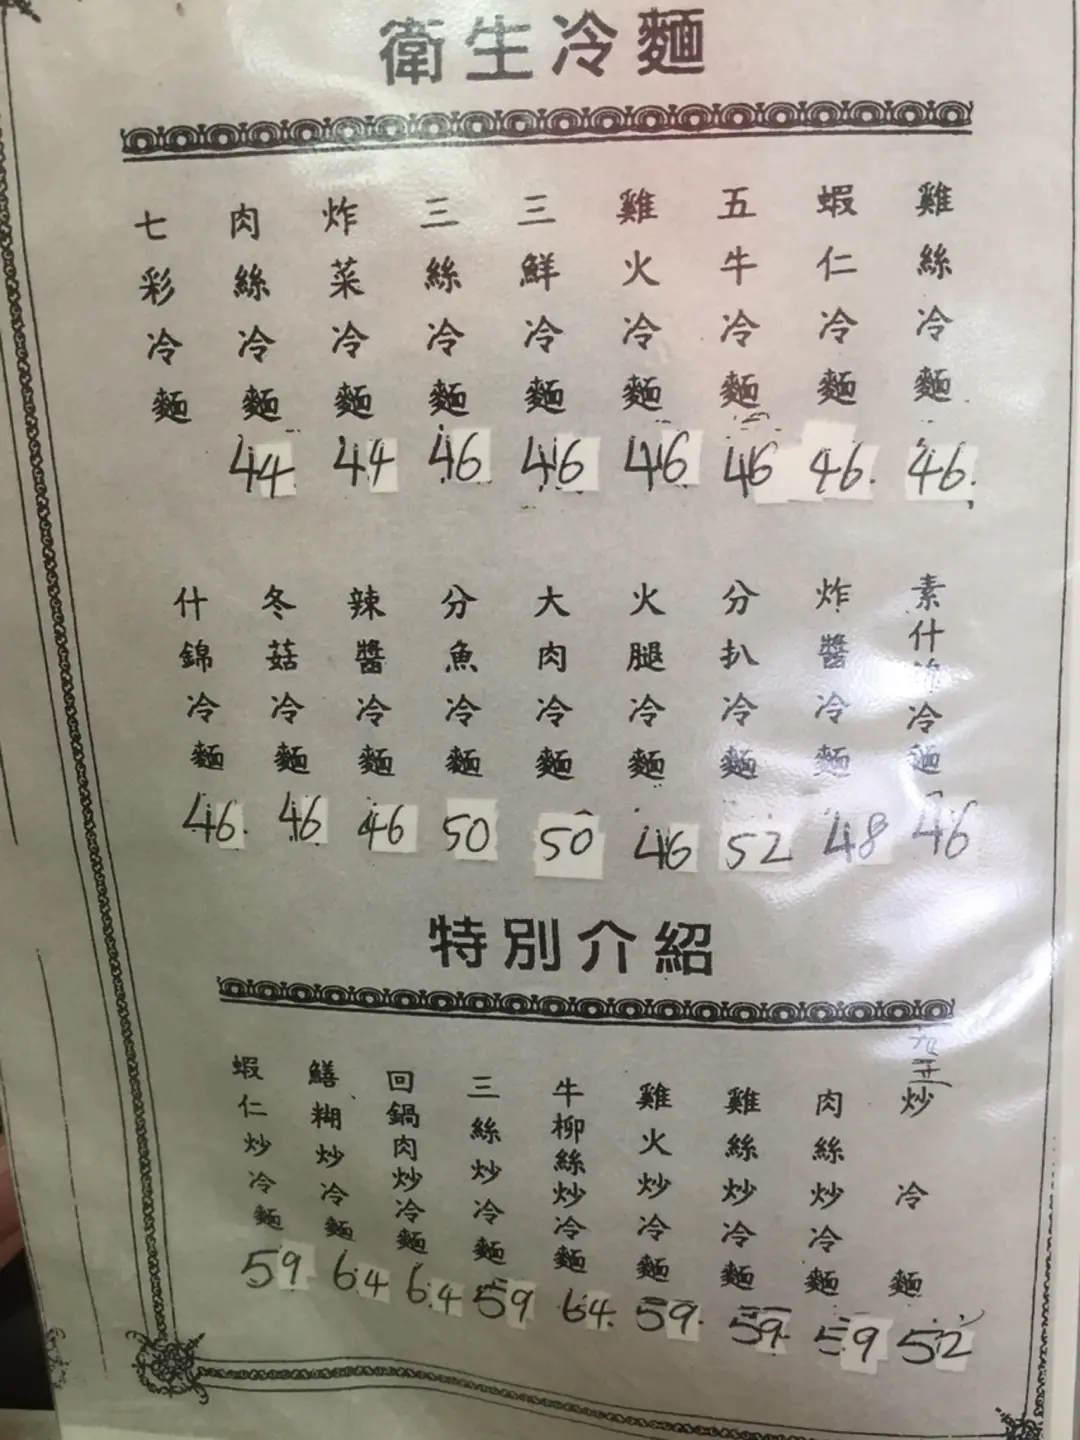 衛生冷麵
雞絲冷麵 46.
蝦仁冷麵 46.
五牛冷麵 46
雞火冷麵 46
三鮮冷麵 46
三絲冷麵 46
炸菜冷麵 44
肉絲冷麵 44
七彩冷麵
素什錦冷麵 46
炸醬冷麵 48
分扒冷麵 52
火腿冷麵 46
大肉冷麵 50
分魚冷麵 50
辣醬冷麵 46
冬菇冷麵 46
什錦冷麵 46.
特別介紹
炒冷麵 52
肉絲炒冷麵 59
雞絲炒冷麵 59.
雞火炒冷麵 59.
牛柳絲炒冷麵 64.
三絲炒冷麵 59
回鍋肉炒冷麵 64
鱔糊炒冷麵 64
蝦仁炒冷麵 59